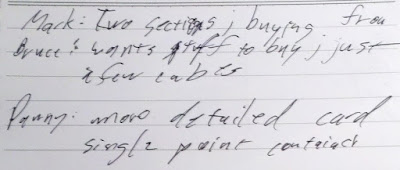 Mark: Two sections; buying from
Bruce: wants stuff to buy; just
a few cubes
Danny: more detailed card
single point contact